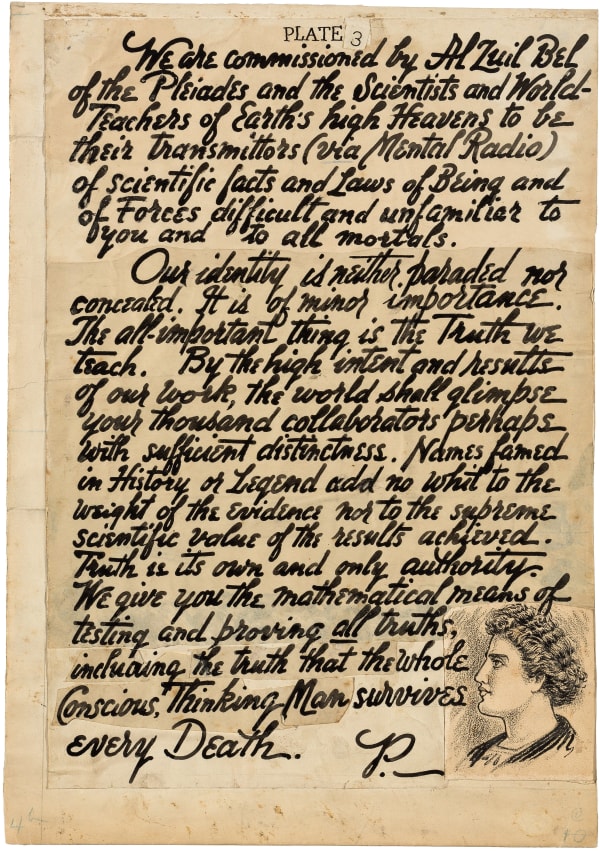 PLATE 3
We are commissioned by Al Zuil Bel
of the Pleiades and the Scientists and World-
Teachers of Earth's high Heavens to be
their transmittors (via Mental Radio)
of scientific facts and Laws of Being and
of Forces difficult and unfamiliar to
you and to all mortals.
Our identity is neither paraded nor
concealed. It is of minor importance.
The all-important thing is the Truth we
teach. By the high intent and results
of our work, the world shall glimpse
your thousand collaborators perhaps
with sufficient distinctness. Names famed
in History or Legend add no whit to the
weight of the evidence nor to the supreme
scientific value of the results achieved.
Truth is its own and only authority.
We give you the mathematical means of
testing and proving all truths,
including the truth that the whole
Conscious, Thinking Man survives
every Death. P.